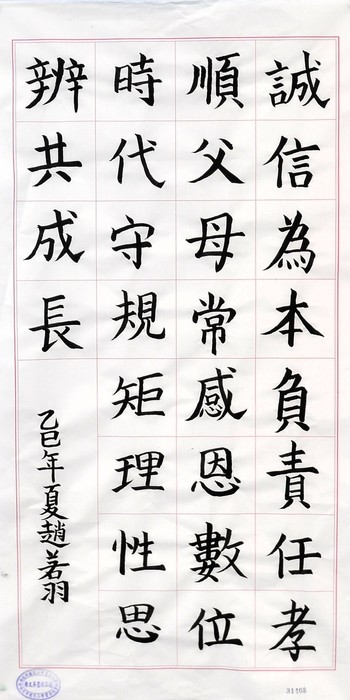 誠信為本負責任孝
順父母常感恩數位
時代守規矩理性思
辨共成長
乙巳年夏趙若羽
31108